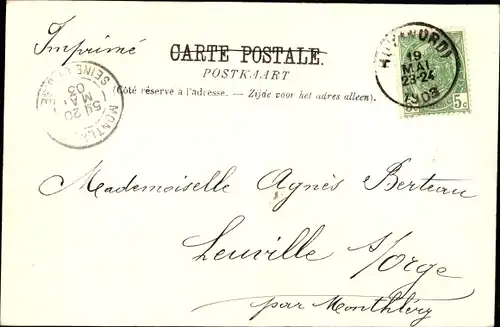 Imprimé
CARTE POSTALE.
POSTKAART
(Côté réservé à l'adresse. — Zijde voor het adres alleen).
19
MAI
23-24
1903
5c
SEINE
MONTL
5E 20
MAI
03
Mademoiselle Agnès Berteau
Leuville s/orge
par Monthléry